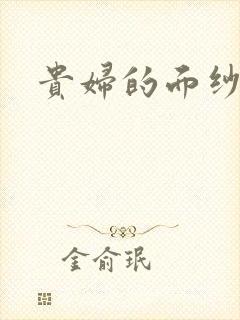 貴婦的而纱
金俞珉